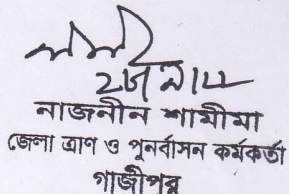 নাজনীন শামীমা
জেলা ত্রাণ ও পুনর্বাসন কর্মকর্তা
গাজীপুর